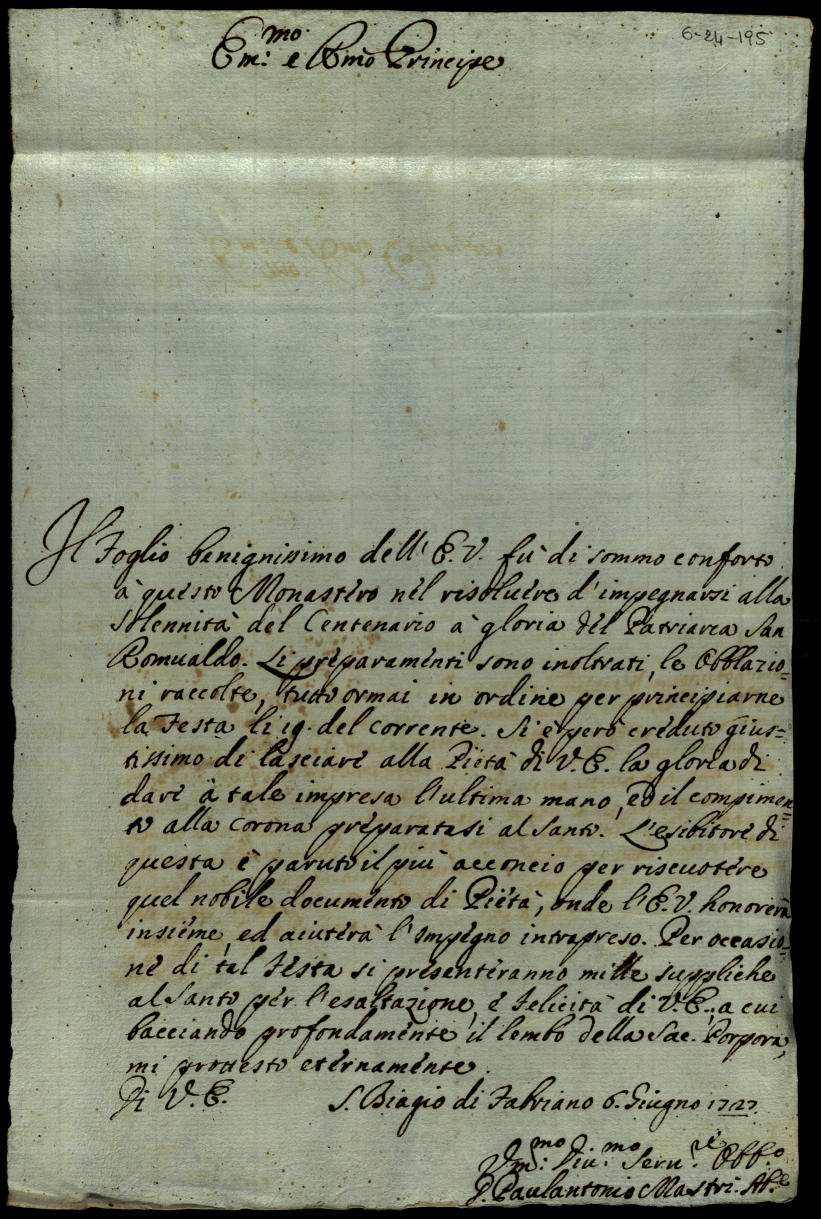 6-24-195
Em:mo e Rmo Principe
Il Foglio benignissimo dell' E. V. fù di sommo conforto
à questo Monastero nel risolvere d'impegnarsi alla
solennità del Centenario à gloria del Patriarca San
Romualdo. Li preparamenti sono inoltrati, le Obblazio=
ni raccolte, tutto ormai in ordine per principiarne
la Festa li 19. del corrente. Si è però creduto gius=
tissimo di lasciare alla Pietà di V. E. la gloria di
dare à tale impresa l'ultima mano, ed il compimen=
to alla Corona preparatasi al Santo. L'esibitore di
questa è paruto il più acconcio per riscuotere
quel nobile documento di Pietà, onde l'E. V. honorerà
insieme, ed aiuterà l'Impegno intrapreso. Per occasio=
ne di tal Festa si presenteranno mille suppliche
al Santo per l'esaltazione, e Felicità di V. E., a cui
bacciando profondamente il lembo della Sac. Porpora,
mi protesto eternamente.
Di V. E. S. Biagio di Fabriano 6. Giugno 1727.
Vm:mo Div:mo Seru:re Obb:o
D. Paulantonio Mastri. Ab:e